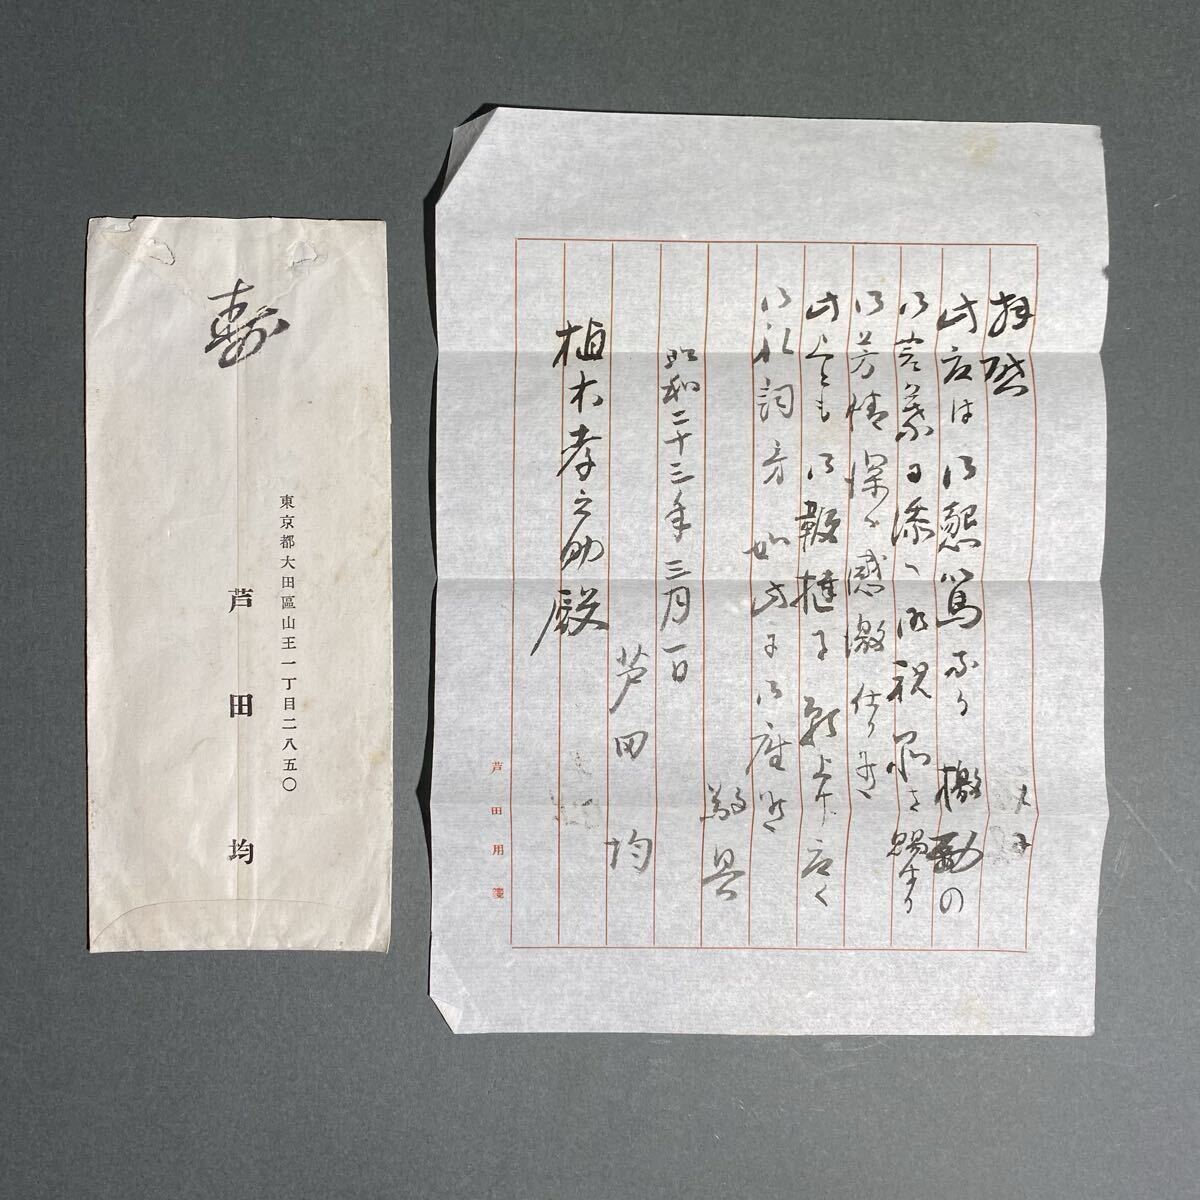 寿
東京都大田區山王一丁目二八五〇
芦田均
拝啓
此度は御懇篤なる激励の
御言葉を添へ御祝品を賜はり
御芳情深く感激仕り候
此上とも御鞭撻を願上げ度く
御礼詞旁如此に御座候
敬具
昭和二十三年三月一日
芦田均
植木孝之助殿
芦田用箋